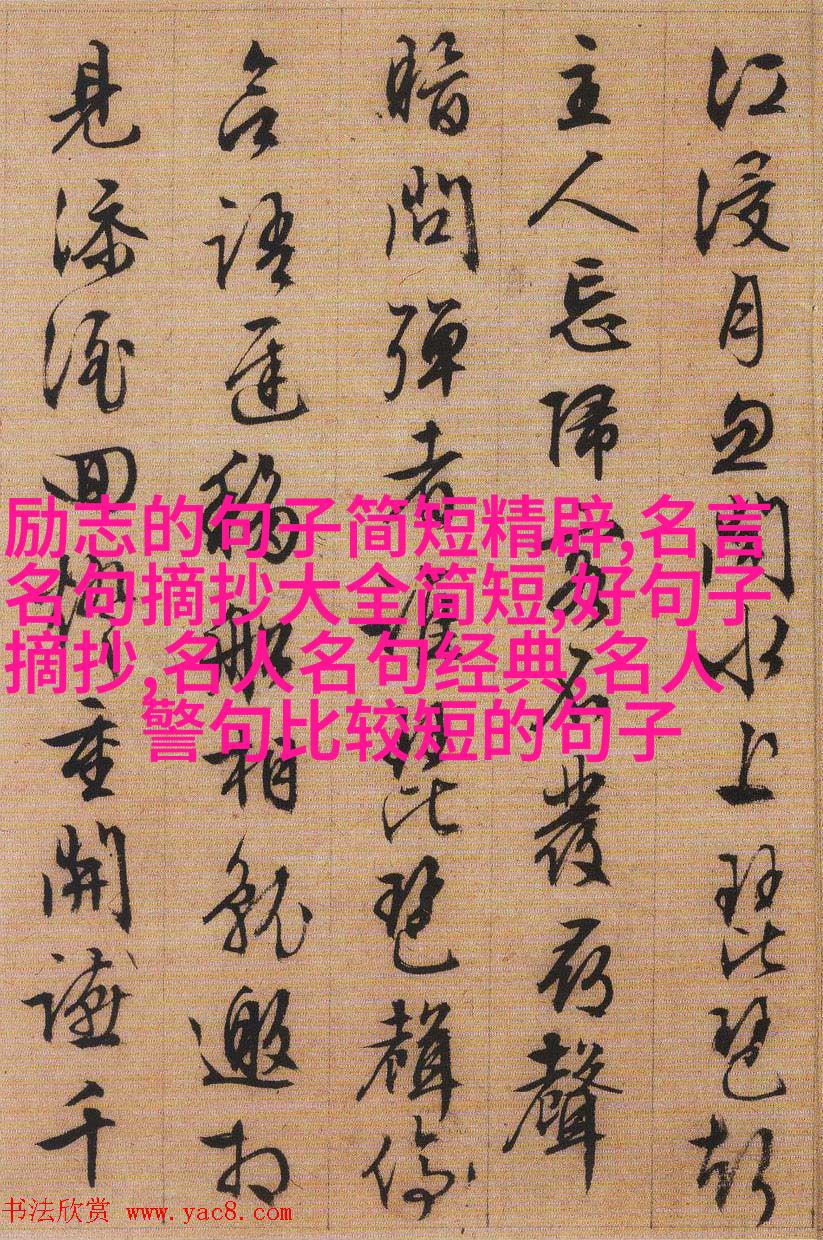 江浸月忽聞水上琵琶
主人忘歸客不發尋聲
暗問彈者誰琵琶聲停
語遲移船相就邀相
見添酒回燈重開讌千
励志的句子简短精辟,名言
名句摘抄大全简短,好句子
摘抄,名人名句经典,名人
警句比较短的句子
书法欣赏 www.yac8.com